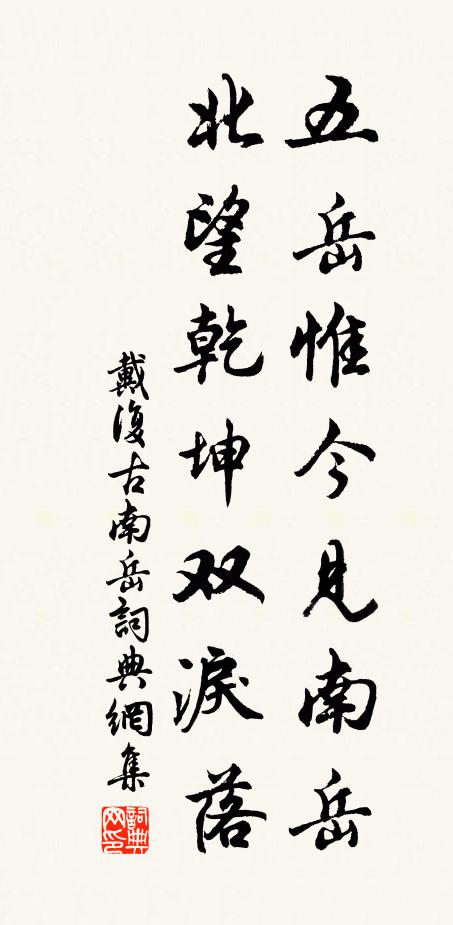 五岳惟今見南岳
北望乾坤双淚落
戴復古南岳詞典網集
詞典网印